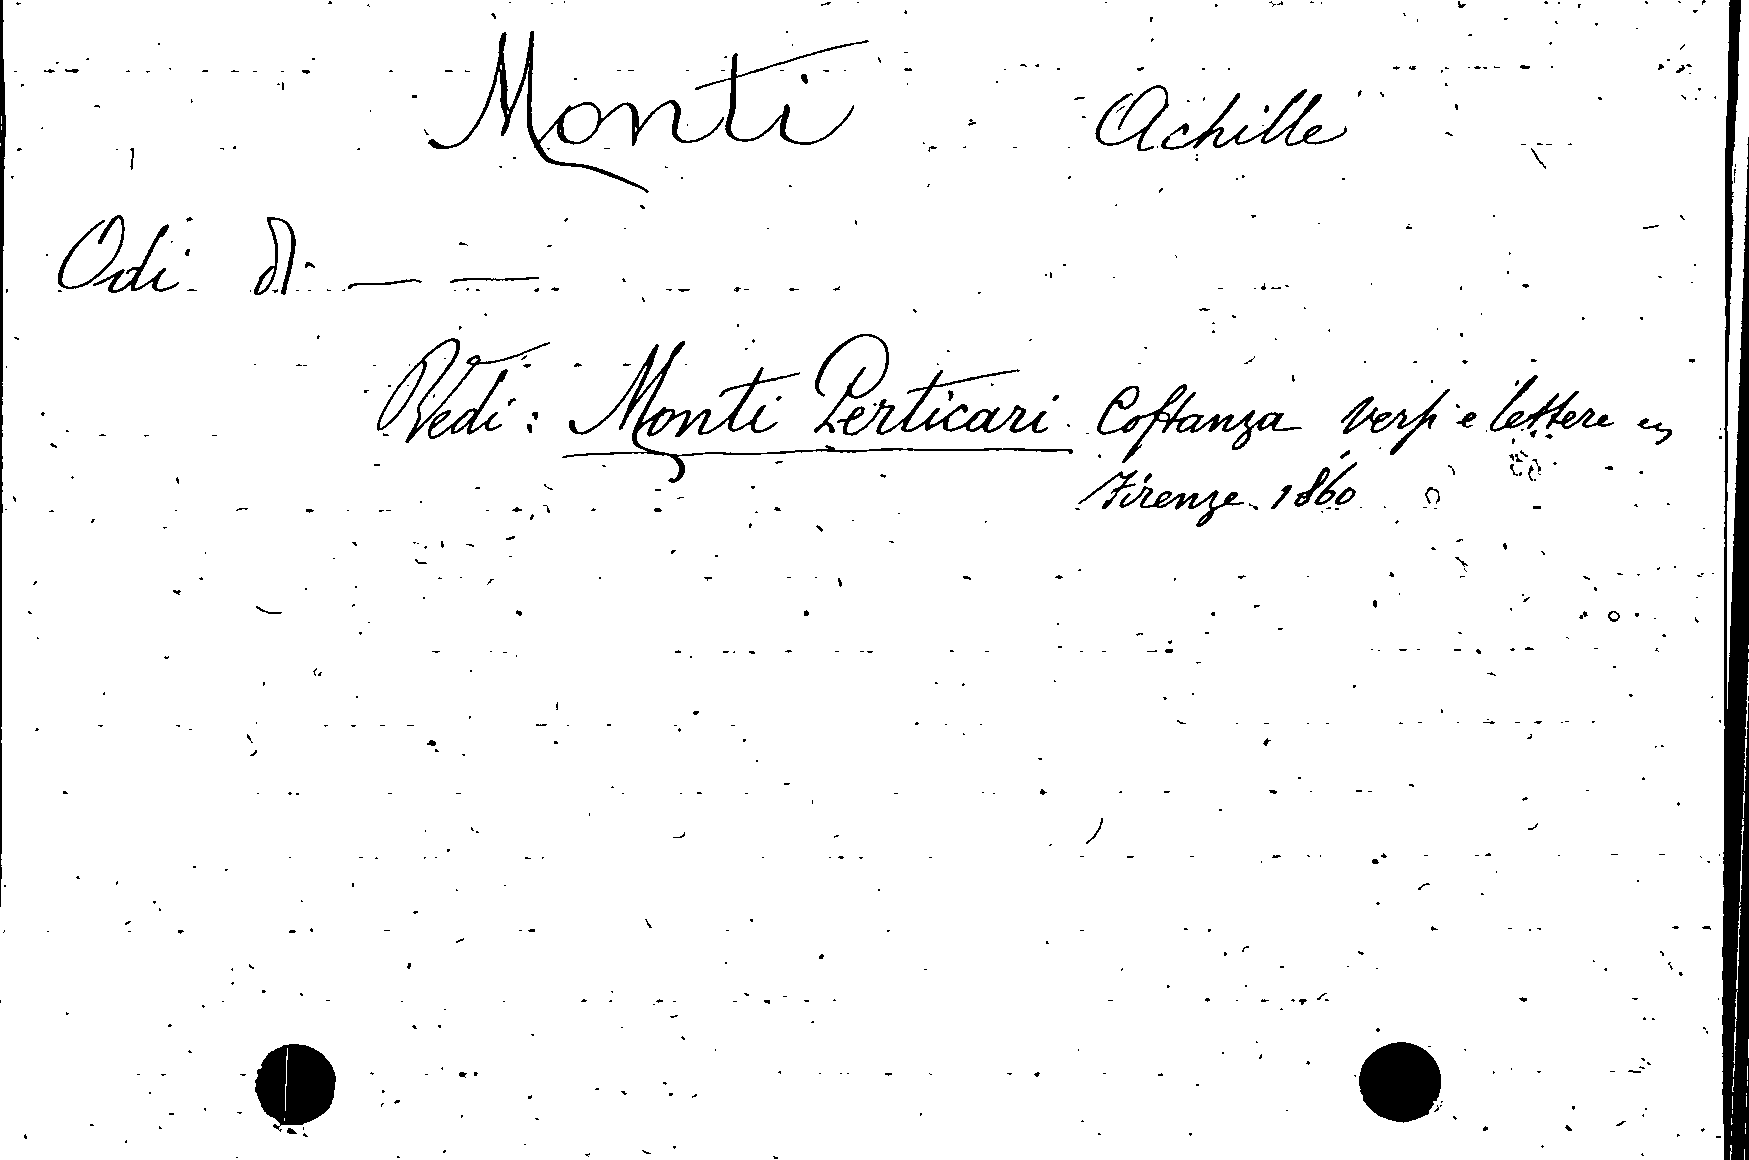 Monti Achille
Odi di — —
Vedi: Monti Perticari Costanza versi e lettere
Firenze 1860